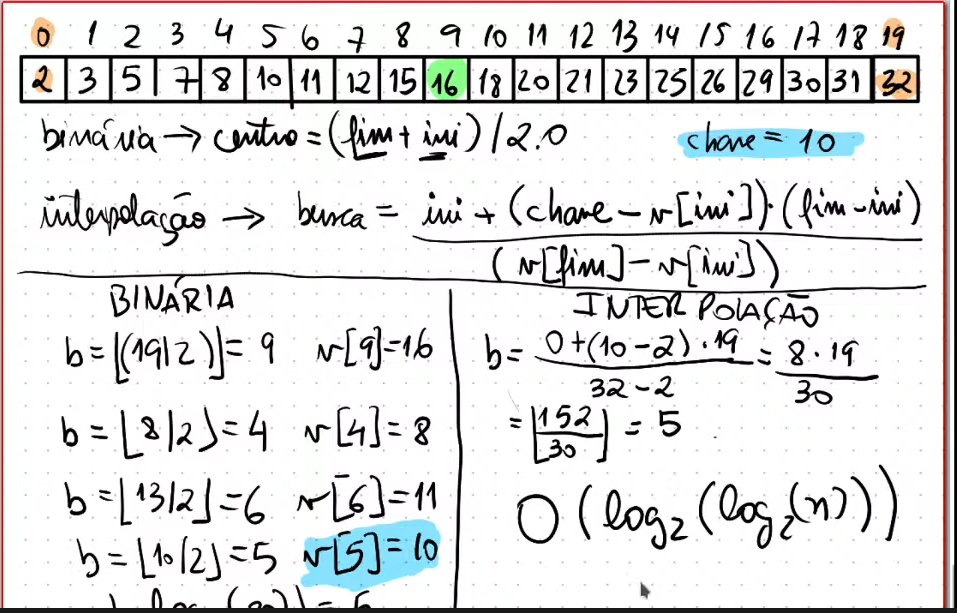 0 1 2 3 4 5 6 7 8 9 10 11 12 13 14 15 16 17 18 19
2 3 5 7 8 10 11 12 15 16 18 20 21 23 25 26 29 30 31 32
binária → centro = (fim + ini) / 2.0
chave = 10
interpolação → busca = ini + (chave - v[ini]) · (fim - ini)
(v[fim] - v[ini])
BINÁRIA
b = ⌊(19/2)⌋ = 9 v[9] = 16
b = ⌊8/2⌋ = 4 v[4] = 8
b = ⌊13/2⌋ = 6 v[6] = 11
b = ⌊10/2⌋ = 5 v[5] = 10
INTERPOLAÇÃO
b = 0 + (10 - 2) · 19 = 8 · 19
32 - 2 30
= ⌊152/30⌋ = 5
O (log₂ (log₂ (n)))